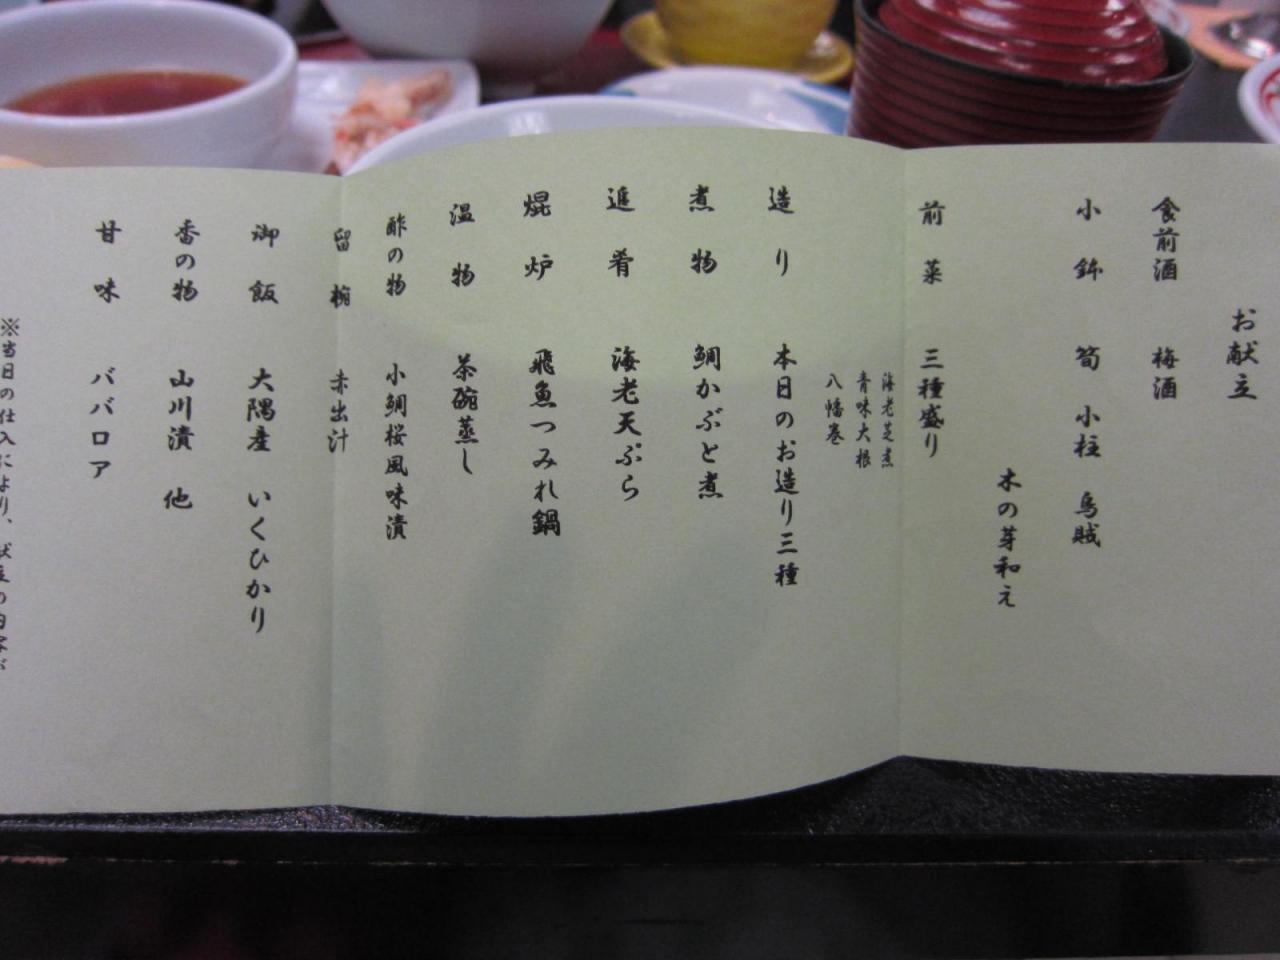 お献立
食前酒 梅酒
小鉢 筍 小柱 烏賊
木の芽和え
前菜 三種盛り
海老芝煮
青味大根
八幡巻
造り 本日のお造り三種
煮物 鯛かぶと煮
進肴 海老天ぷら
焜炉 飛魚つみれ鍋
温物 茶碗蒸し
酢の物 小鯛桜風味漬
留椀 赤出汁
御飯 大隅産 いくひかり
香の物 山川漬 他
甘味 ババロア
※当日の仕入により、献立の内容が